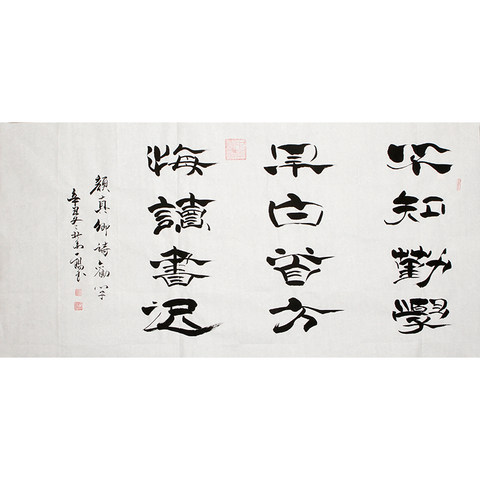 不知勤學
早白首方
悔讀書迟
顏真卿詩勸学
辛丑冬